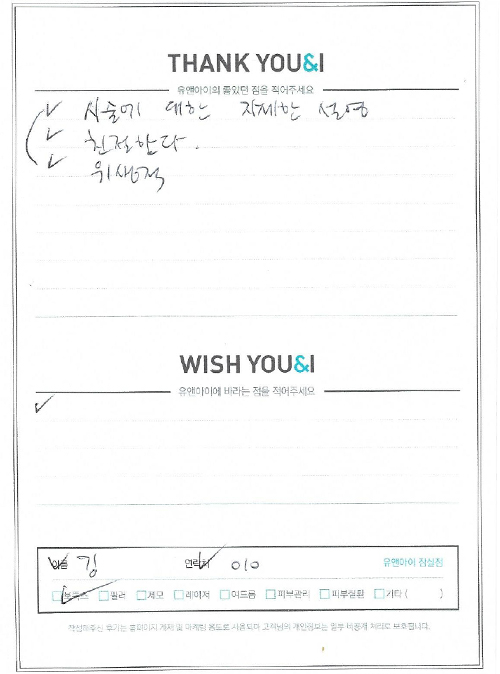 THANK YOU&I
유앤아이의 좋았던 점을 적어주세요
시술에 대한 자세한 설명
친절한다.
위생적
WISH YOU&I
유앤아이에 바라는 점을 적어주세요
이름 김 연락처 010 유앤아이 잠실점
보톡스 필러 제모 레이저 여드름 피부관리 피부질환 기타 ( )
작성해주신 후기는 홈페이지 게재 및 마케팅 용도로 사용되며 고객님의 개인정보는 일부 비공개 처리로 보호됩니다.